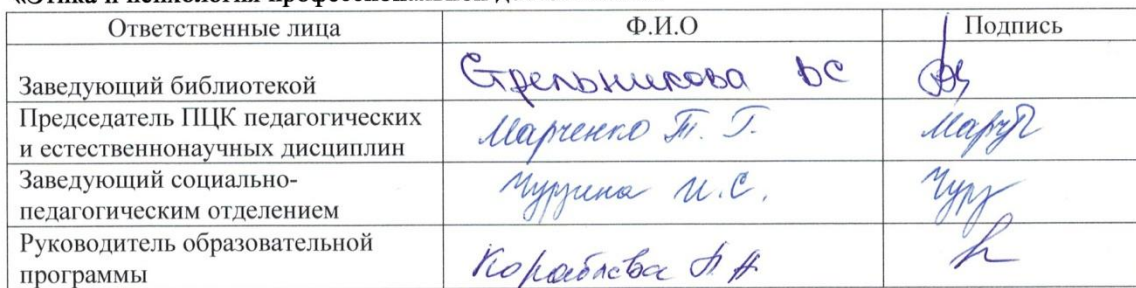 «Этика и психология профессиональной
Ответственные лица Ф.И.О Подпись
Заведующий библиотекой Стрельникова ВС
Председатель ПЦК педагогических
и естественнонаучных дисциплин Марченко Т. Г.
Заведующий социально-
педагогическим отделением Чурзина И.С.
Руководитель образовательной
программы Кораблева